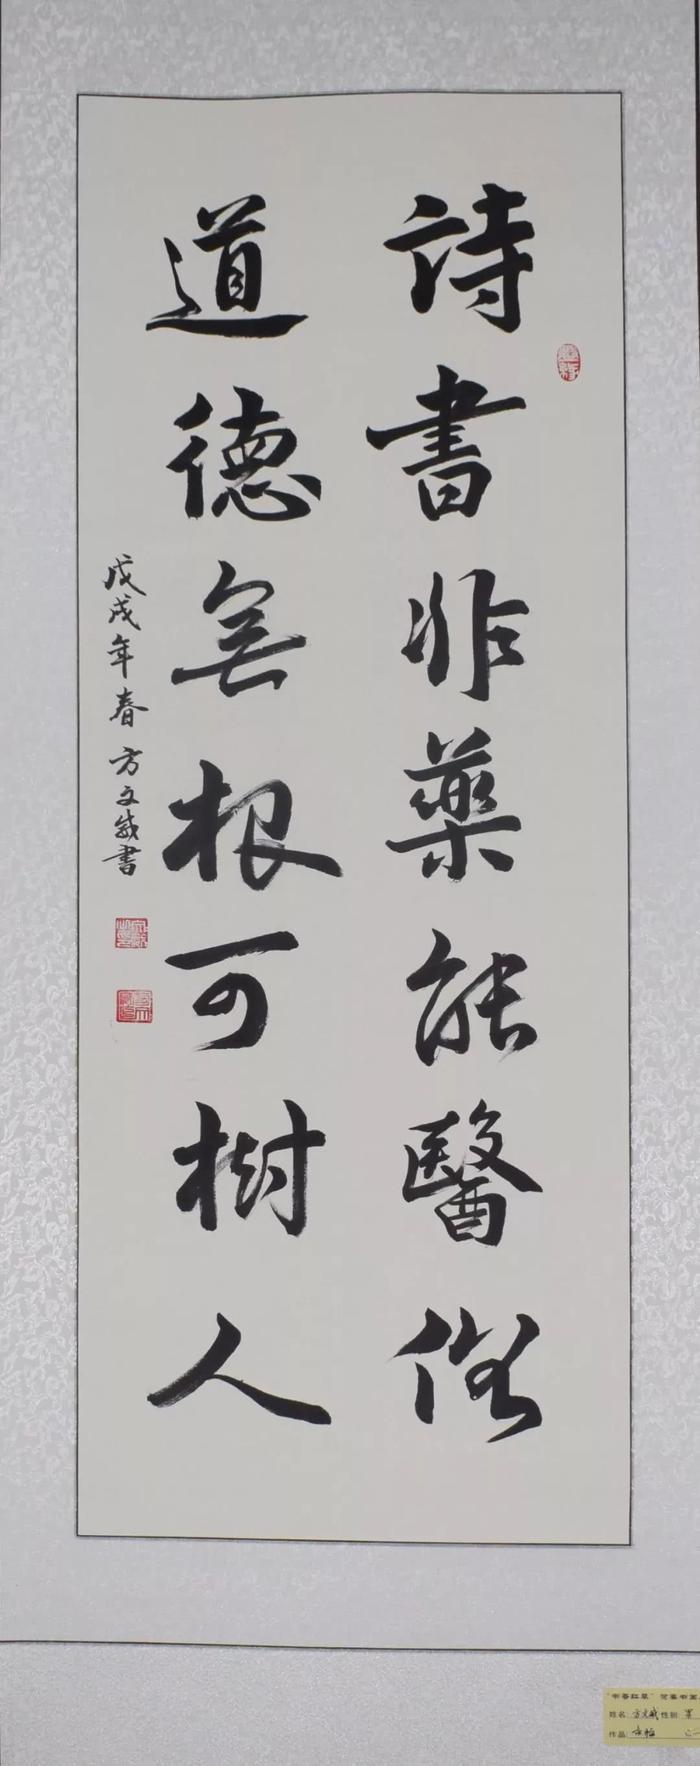 詩書非藥能醫俗
道德無根可樹人
戊戌年春方文斌書
姓名: 方文斌 性别: 男
作品: